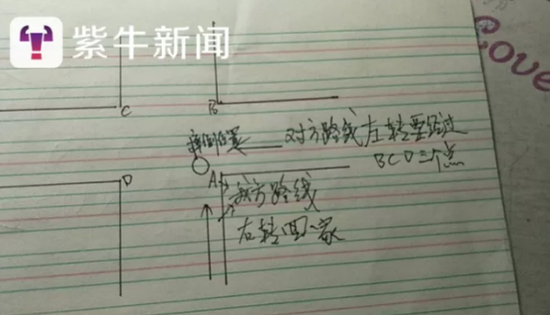 紫牛新闻
Love
C
B
摔倒位置
对方路线左转要经过
BCD三个点
D
A
我方路线
右转回家